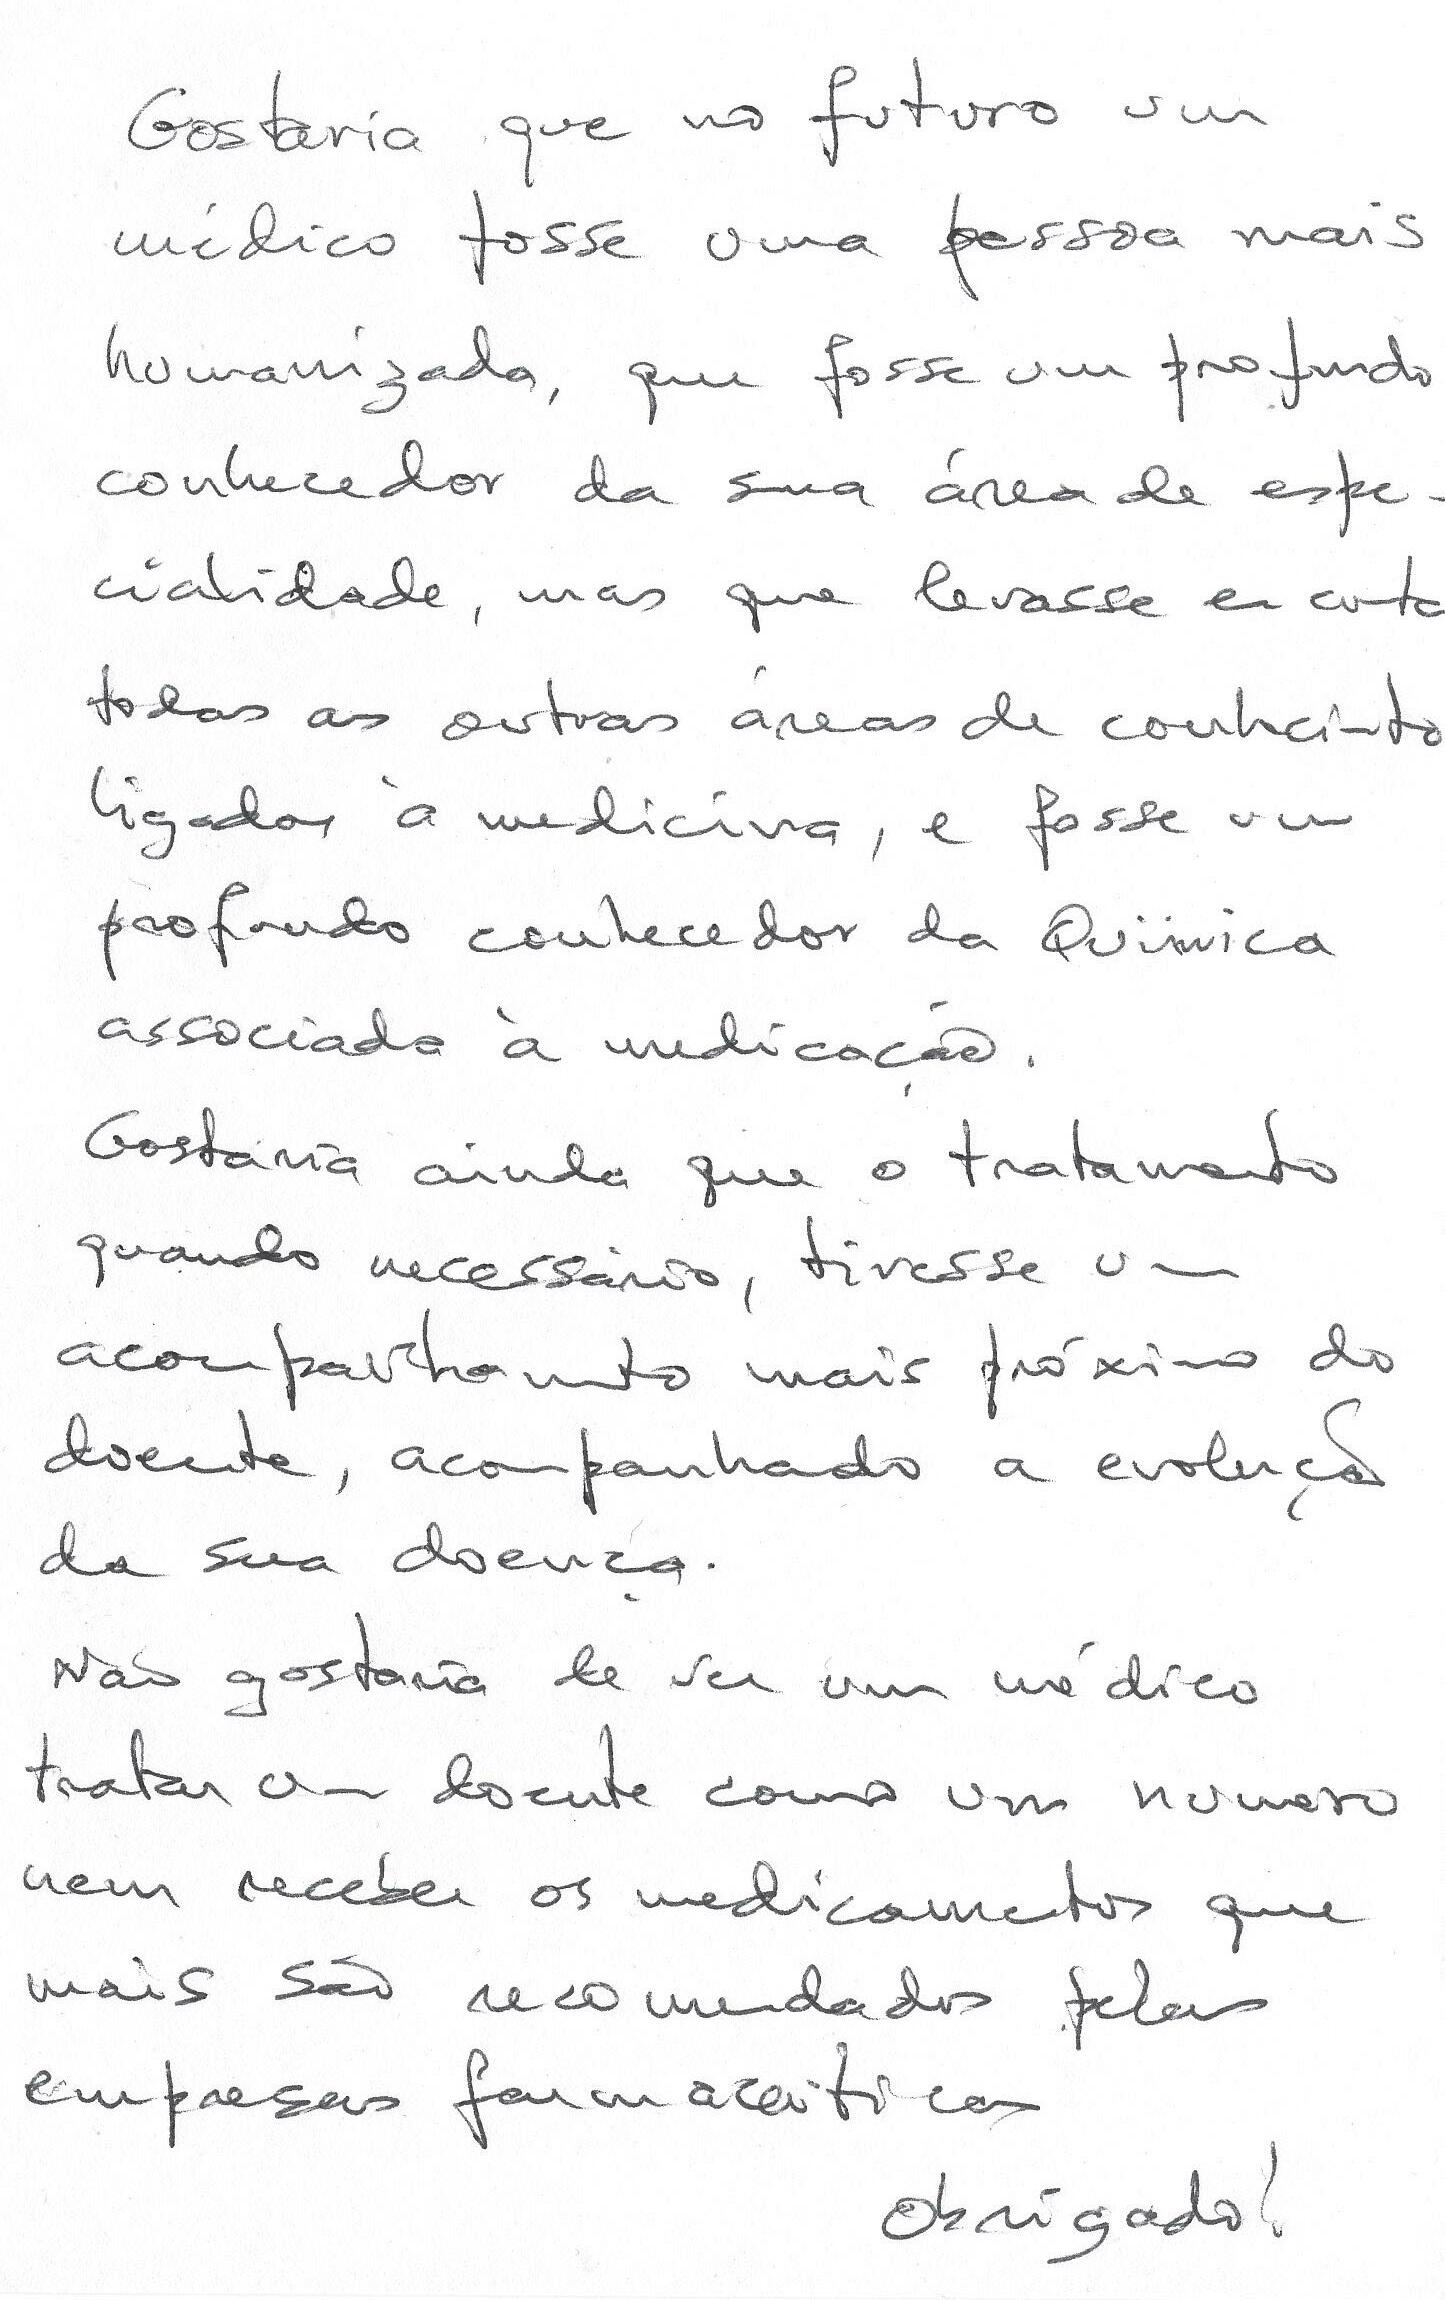 Gostaria que no futuro um
médico fosse uma pessoa mais
humanizada, que fosse um profundo
conhecedor da sua área de espe-
cialidade, mas que levasse em conta
todas as outras áreas de conhecimto
ligadas à medicina, e fosse um
profundo conhecedor da Química
associada à medicação.
Gostaria ainda que o tratamento
quando necessário, tivesse um
acompanhamento mais próximo do
doente, acompanhado a evolução
da sua doença.
Não gostaria de ver um médico
tratar um doente como um numero
nem receber os medicamentos que
mais são recomendados pelas
empresas farmaceuticas
Obrigado!